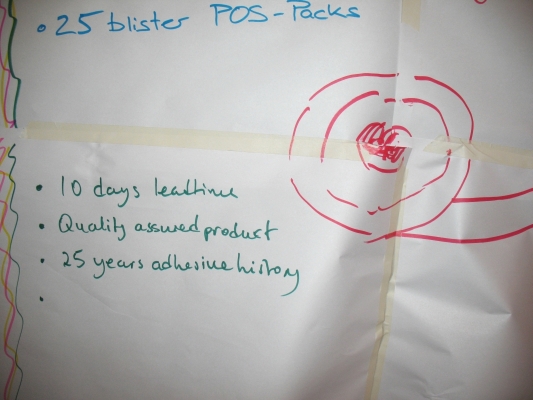 • 25 blister POS-Packs
• 10 days leadtime
• Quality assured product
• 25 years adhesive history
•